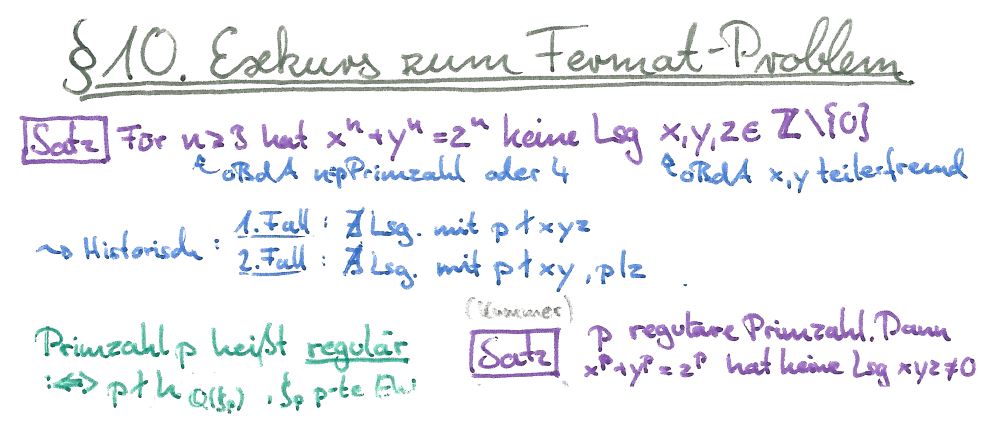 §10. Exkurs zum Fermat-Problem
Satz Für n≥3 hat xⁿ+yⁿ=zⁿ keine Lsg x,y,z∈ℤ\{0}
oBdA n=p Primzahl oder 4 oBdA x,y teilerfremd
⇝ Historisch: 1. Fall: ∄ Lsg. mit p∤xyz
2. Fall: ∄ Lsg. mit p∤xy, p|z
(Kummer)
Primzahl p heißt regulär
:⇔ p∤h_ℚ(ζ_p), ζ_p p-te EW
Satz p reguläre Primzahl. Dann
x^p+y^p=z^p hat keine Lsg xyz≠0